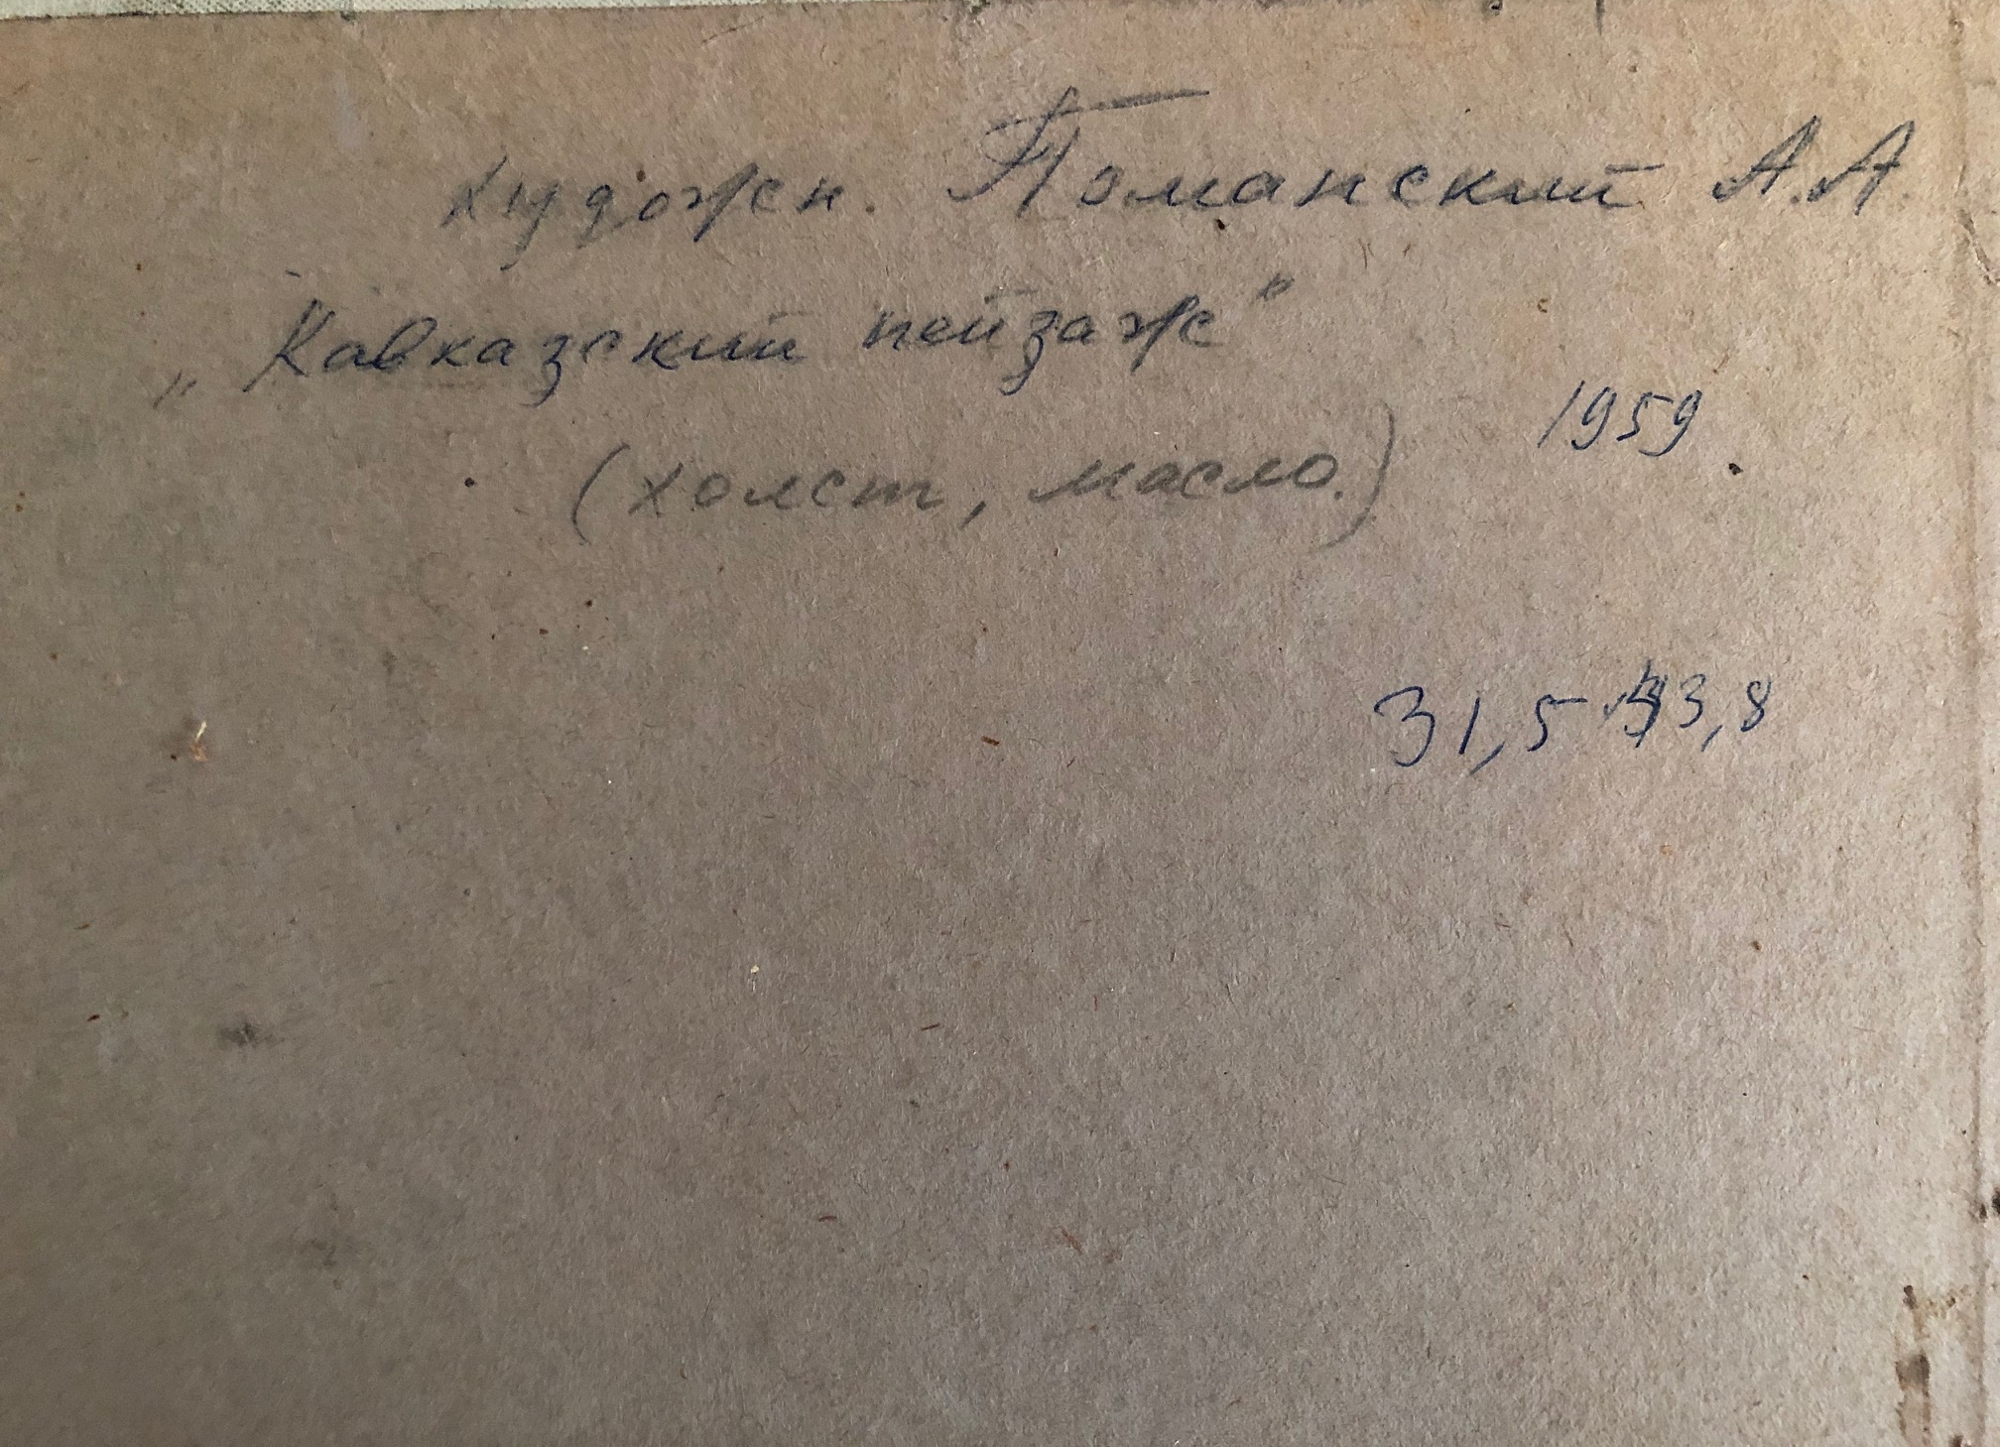 Художн. Поманский А.А
„Кавказский пейзаж"
1959
(холст, масло.)
31,5 43,8